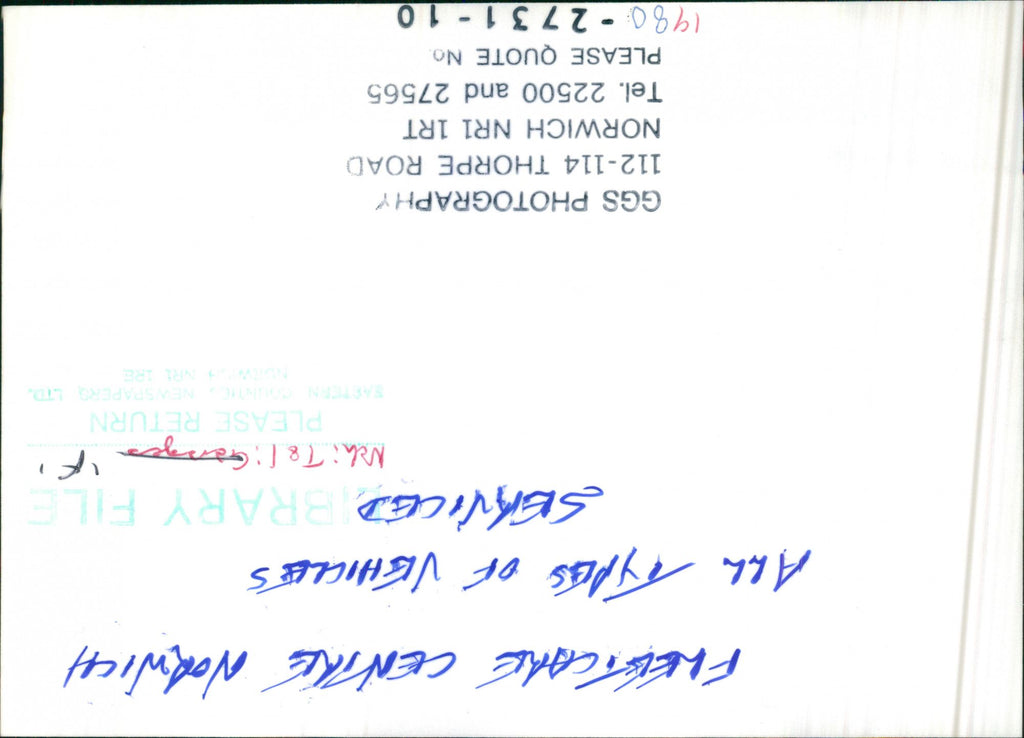 FLEETCARE CENTRE NORWICH
ALL TYPES OF VEHICLES
SERVICED
LIBRARY FILE
Nch: T&I: Garages 'F'
PLEASE RETURN
EASTERN COUNTIES NEWSPAPERS LTD.
NORWICH NR1 1RE
GGS PHOTOGRAPHY
112-114 THORPE ROAD
NORWICH NR1 1RT
Tel. 22500 and 27565
PLEASE QUOTE No.
1980-2731-10